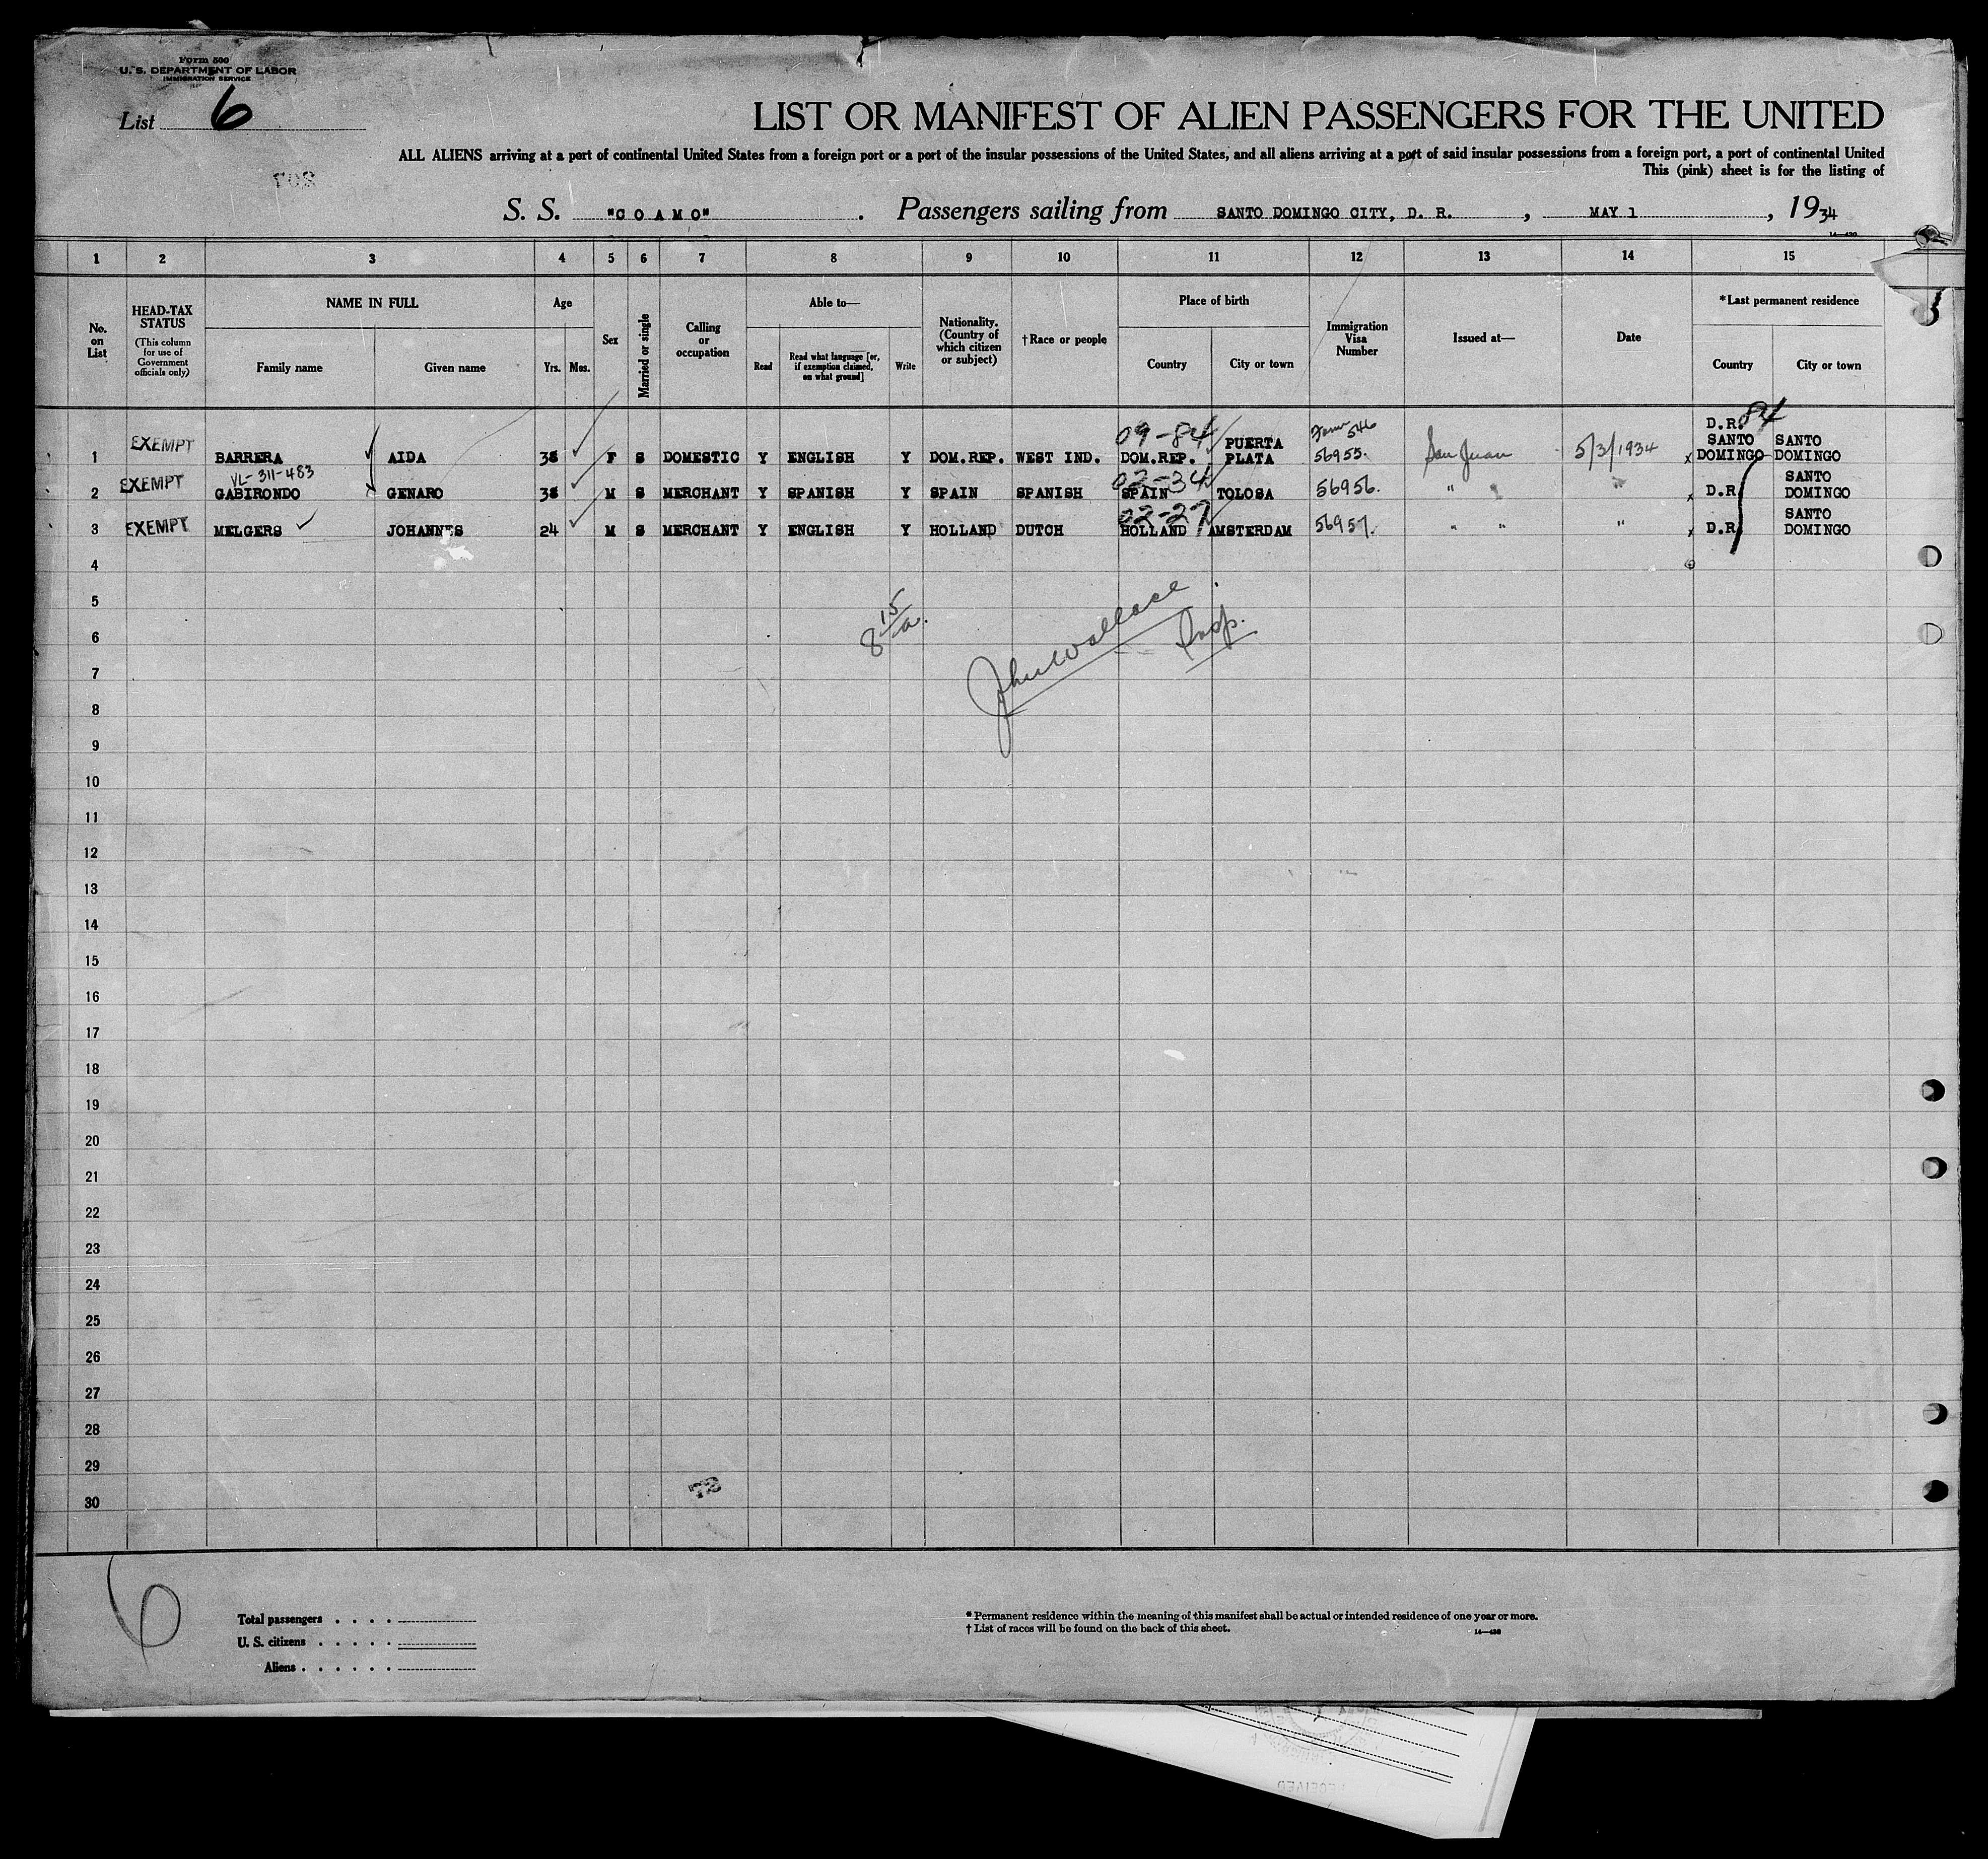 Form 500
U. S. DEPARTMENT OF LABOR
IMMIGRATION SERVICE
List 6
LIST OR MANIFEST OF ALIEN PASSENGERS FOR THE UNITED
ALL ALIENS arriving at a port of continental United States from a foreign port or a port of the insular possessions of the United States, and all aliens arriving at a port of said insular possessions from a foreign port, a port of continental United
This (pink) sheet is for the listing of
S. S. "COAMO". Passengers sailing from SANTO DOMINGO CITY, D. R., MAY 1, 1934
1 2 3 4 5 6 7 8 9 10 11 12 13 14 15
No. on List
HEAD-TAX STATUS
(This column for use of Government officials only)
NAME IN FULL
Family name
Given name
Age
Yrs. Mos.
Sex
Married or single
Calling or occupation
Able to—
Read
Read what language [or, if exemption claimed, on what ground]
Write
Nationality. (Country of which citizen or subject)
†Race or people
Place of birth
Country
City or town
Immigration Visa Number
Issued at—
Date
*Last permanent residence
Country
City or town
1 EXEMPT BARRERA AIDA F S DOMESTIC Y ENGLISH Y DOM.REP. WEST IND. 09-84 DOM.REP. PUERTA PLATA 56955. San Juan 5/3/1934 D.R. 84 SANTO DOMINGO SANTO DOMINGO
VL-311-483
2 EXEMPT GABIRONDO GENARO M S MERCHANT Y SPANISH Y SPAIN SPANISH 02-34 SPAIN TOLOSA 56956. " " D.R. SANTO DOMINGO
3 EXEMPT MELGERS JOHANNES 24 M S MERCHANT Y ENGLISH Y HOLLAND DUTCH 02-27 HOLLAND AMSTERDAM 56957. " " " D.R. SANTO DOMINGO
4
5
6
7
8
9
10
11
12
13
14
15
16
17
18
19
20
21
22
23
24
25
26
27
28
29
30
8 15/a.
John Wallace
Insp.
72
6
Total passengers
U. S. citizens
Aliens
* Permanent residence within the meaning of this manifest shall be actual or intended residence of one year or more.
† List of races will be found on the back of this sheet.
14—430